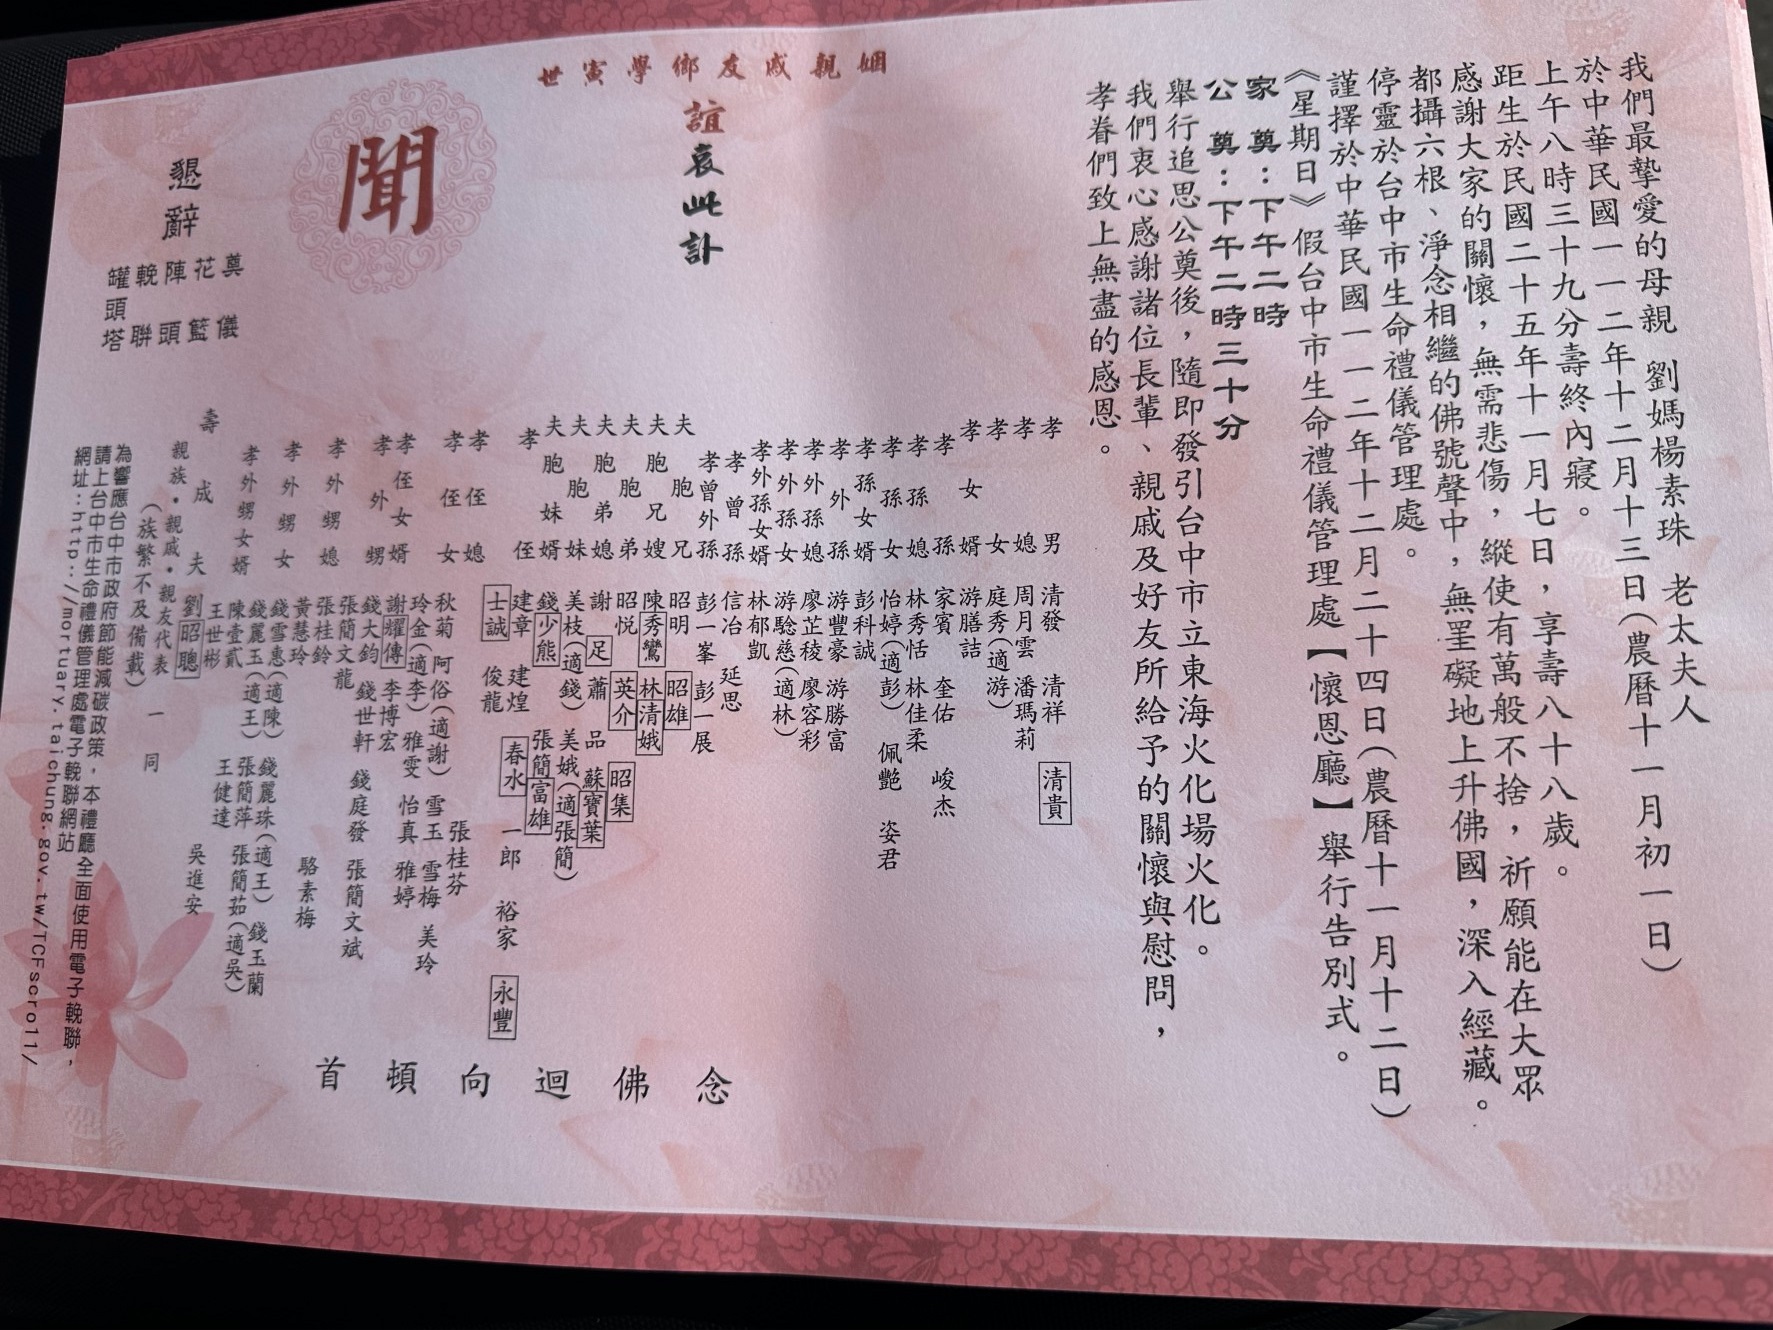 我們最摯愛的母親 劉媽楊素珠 老太夫人
於中華民國一一二年十二月十三日(農曆十一月初一日)
上午八時三十九分壽終內寢。
距生於民國二十五年十一月七日，享壽八十八歲。
感謝大家的關懷，無需悲傷，縱使有萬般不捨，祈願能在大眾
都攝六根、淨念相繼的佛號聲中，無罣礙地上升佛國，深入經藏。
停靈於台中市生命禮儀管理處。
謹擇於中華民國一一二年十二月二十四日(農曆十一月十二日)
《星期日》假台中市生命禮儀管理處【懷恩廳】舉行告別式。
家 奠：下午二時
公 奠：下午二時三十分
舉行追思公奠後，隨即發引台中市立東海火化場火化。
我們衷心感謝諸位長輩、親戚及好友所給予的關懷與慰問，
孝眷們致上無盡的感恩。
姻親戚友鄉學寅世
誼哀此訃
聞
懇辭
奠儀
花籃
陣頭
輓聯
罐頭塔
孝男 清發 清祥 清貴
孝媳 周月雲 潘瑪莉
孝女 庭秀(適游)
孝女婿 游膳詰
孝孫 家賓 奎佑 峻杰
孝孫媳 林秀恬 林佳柔
孝孫女 怡婷(適彭) 佩艷 姿君
孝孫女婿 彭科誠
孝外孫 游豐豪 游勝富
孝外孫媳 廖芷稜 廖容彩
孝外孫女 游騐慈(適林)
孝外孫女婿 林郁凱
孝曾孫 信冶 延思
孝曾外孫 彭一峯 彭一展
夫胞兄 昭明 昭雄
夫胞兄嫂 陳秀鸞 林清娥
夫胞弟 昭悦 英介 昭集
夫胞弟媳 謝足 蕭品 蘇寶葉
夫胞妹 美枝(適錢) 美娥(適張簡)
夫胞妹婿 錢少熊 張簡富雄
孝侄 建章 建煌 春水 一郎 裕家 永豐
士誠 俊龍
孝侄媳 張桂芬
孝侄女 秋菊 阿俗(適謝) 雪玉 雪梅 美玲
玲金(適李) 雅雯 怡真 雅婷
孝侄女婿 謝耀傳 李博宏
孝外甥 錢大鈞 錢世軒 錢庭發 張簡文斌
張簡文龍
孝外甥媳 張桂鈴
黃慧玲 駱素梅
孝外甥女 錢雪惠(適陳) 錢麗珠(適王) 錢玉蘭
錢麗玉(適王) 張簡萍 張簡茹(適吳)
孝外甥女婿 陳壹貳 王健達 吳進安
王世彬
壽成夫 劉昭聰
親族・親戚・親友代表 一同
(族繁不及備載)
念佛迴向頓首
為響應台中市政府節能減碳政策，本禮廳全面使用電子輓聯，
請上台中市生命禮儀管理處電子輓聯網站
網址：http://mortuary.taichung.gov.tw/TCFscroll/